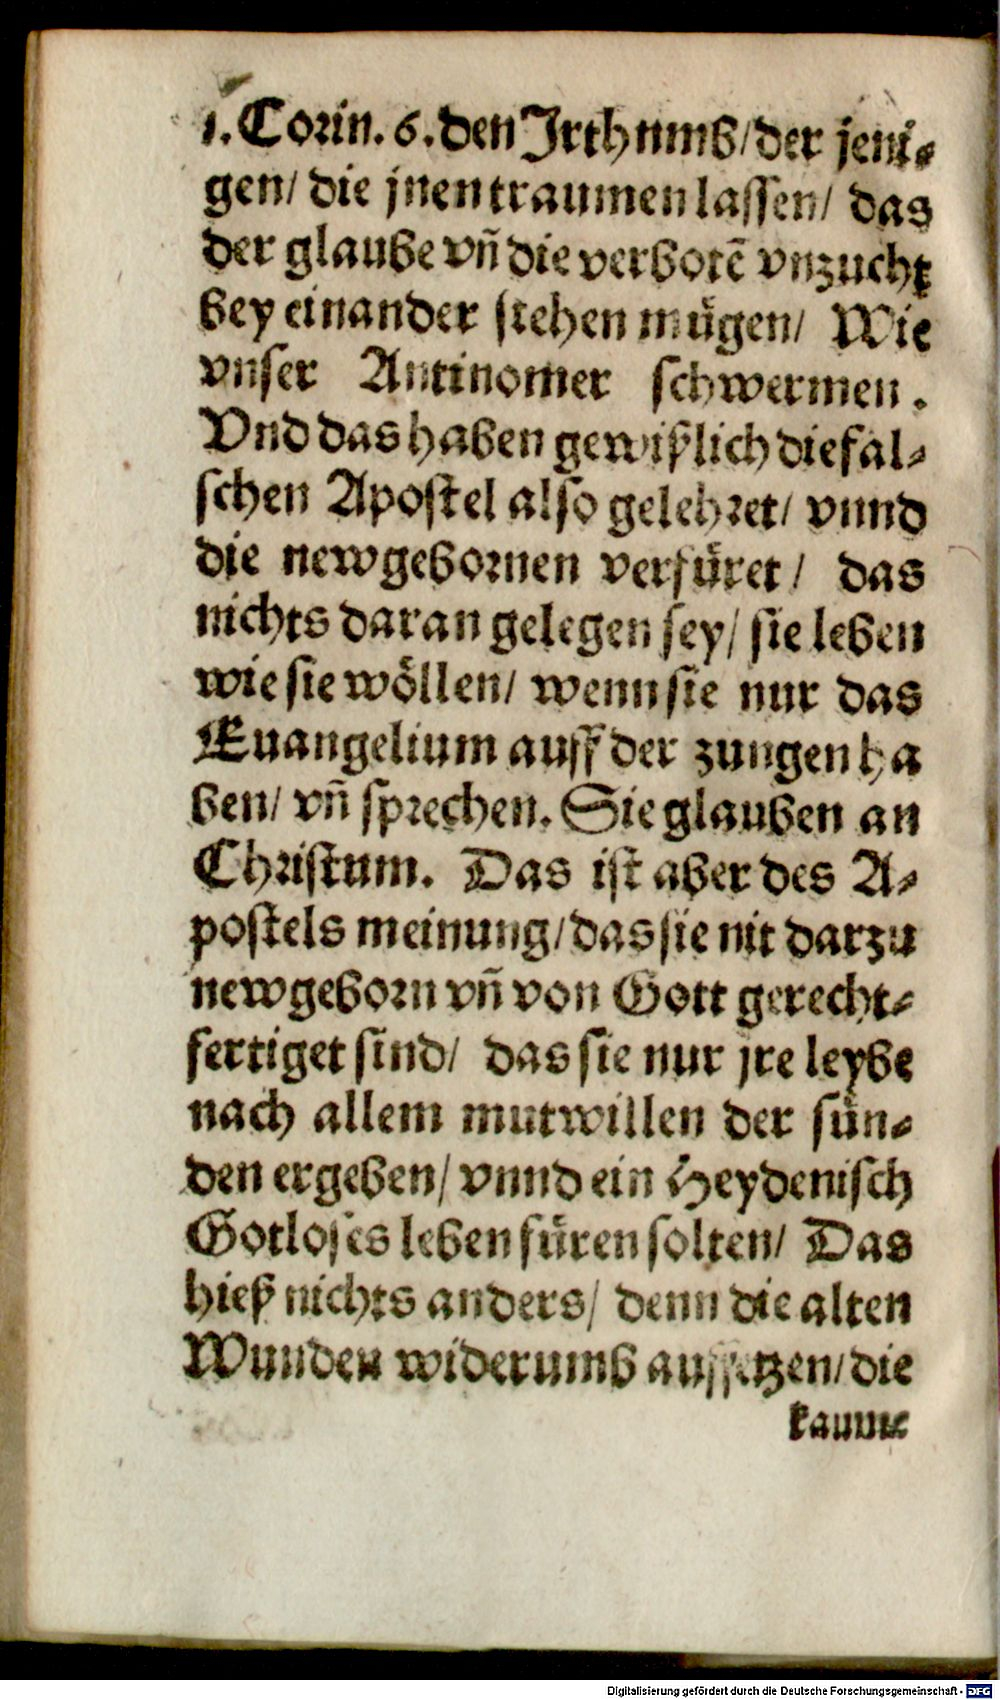 1. Corin. 6. den Jrthumb/ der jeni⸗
gen/ die jnen traumen lassen/ das
der glaube vñ die verbotē vnzucht
bey einander stehen mügen/ Wie
vnser Antinomer schwermen.
Vnd das haben gewißlich die fal⸗
schen Apostel also gelehret/ vnnd
die newgebornen verfüret/ das
nichts daran gelegen sey/ sie leben
wie sie wöllen/ wenn sie nur das
Euangelium auff der zungen ha
ben/ vñ sprechen. Sie glauben an
Christum. Das ist aber des A⸗
postels meinung/ das sie nit darzu
newgeborn vñ von Gott gerecht⸗
fertiget sind/ das sie nur jre leybe
nach allem mutwillen der sün⸗
den ergeben/ vnnd ein Heydenisch
Gotloses leben füren solten/ Das
hieß nichts anders/ denn die alten
Wunden widerumb auffetzen/ die
kaum
Digitalisierung gefördert durch die Deutsche Forschungsgemeinschaft - DFG